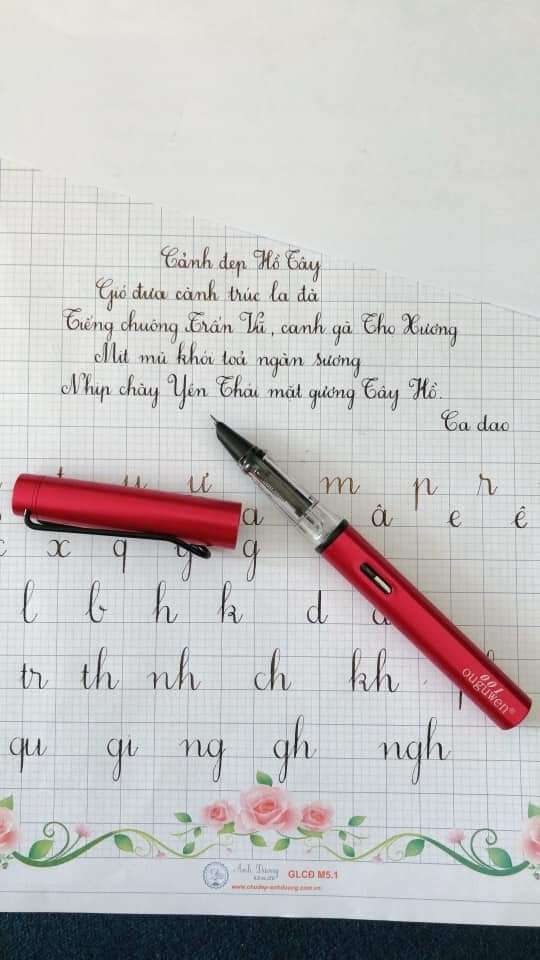 Cảnh đẹp Hồ Tây
Gió đưa cành trúc la đà
Tiếng chuông Trấn Vũ, canh gà Thọ Xương
Mịt mù khói toả ngàn sương
Nhịp chày Yên Thái mặt gương Tây Hồ.
Ca dao
t u ư m p r
a â e ê
c x q y g
l b h k d
tr th nh ch kh
qu gi ng gh ngh
001
ouguwen®
Ánh Dương
GLCĐ M5.1
www.chudep-anhduong.com.vn